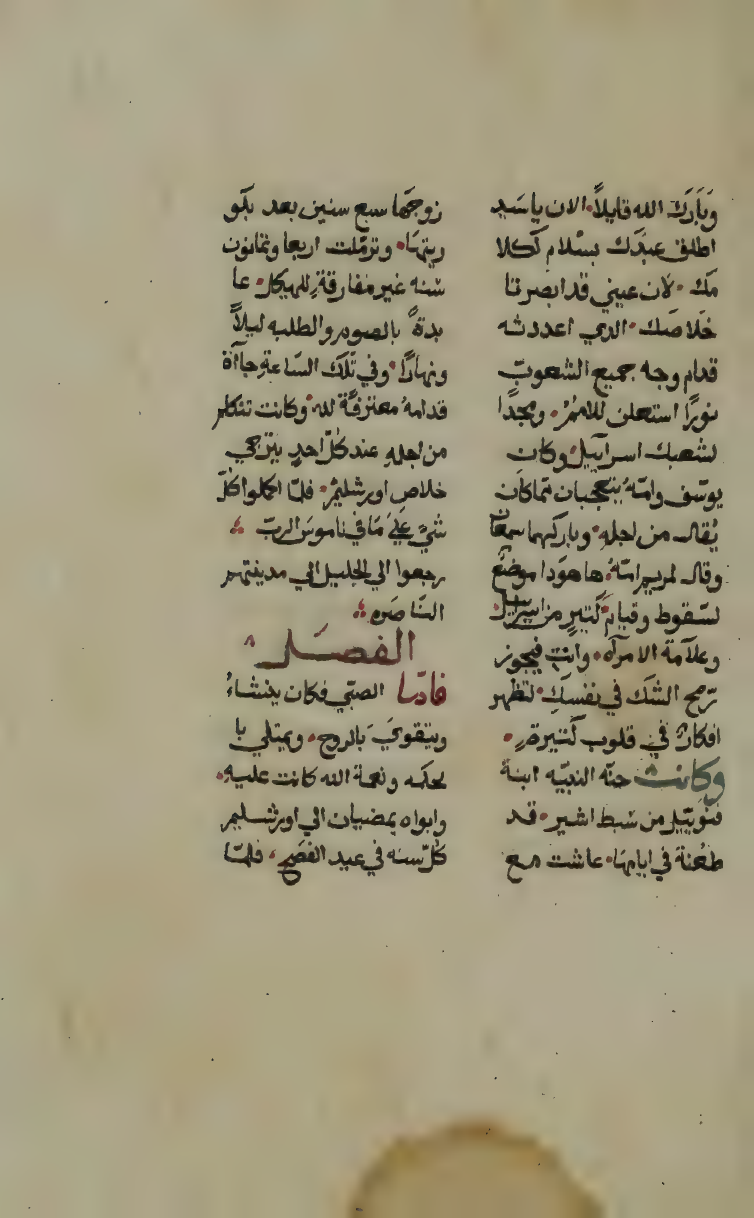 وَبَارَكَ الله قايلاً· الان ياسَيد
اطلق عبدَك بسَلام لكلا
مَك · لان عيني قد ابصرتا
خلاصَك · الدي اعددته
قدام وجه جميع الشعوبّ
نورًا استعلن للامم · ومجدا
لشعبك اسرآييل · وكان
يوسَف وامّهُ يتعجبان مما كان
يُقال من اجله · وباركهما سمعان
وقال لمريم امّهُ · ها هودا موضع
لسَقوط وقيام كتير من اسرآييل
وعلآمة الامرآه · وانتِ فيجوز
رمح الشك في نفسكِ · لتظهر
افكارٌ في قلوب كتيرة ·
وكانت حنّه النبيّه ابنة
فنوييل من سَبط اشير · قد
طعنة في ايامهَا · عاشت مع
زوجهَا سبع سنين بعد بكو
ريتهَا · وترمّلت اربعا وتمانون
سَنه غير مفارقةٍ للهيكل · عا
بدةً بالصوم والطلبه ليلاً
ونهارًا · وفي تلكَ السّاعةِ جاآة
قدامهُ معترفةً لله · وكانت تتكلم
من اجله عند كلّ احدٍ يترجي
خلاص اورشليم · فلمّا اكملوا كلّ
شيً علي مَا في ناموسَ الربّ
رجعوا الي الجليل الي مدينتهم
النّاصَره
الفصَل
فامّا الصبّي فكان ينشاءُ
ويتقويَ بالروح · ويمتلي با
لحكمه ونعمة الله كانت عليهِ ·
وابواه يمضيان الي اورشليم
كلّ سنه في عيد الفصَح · فلمّا